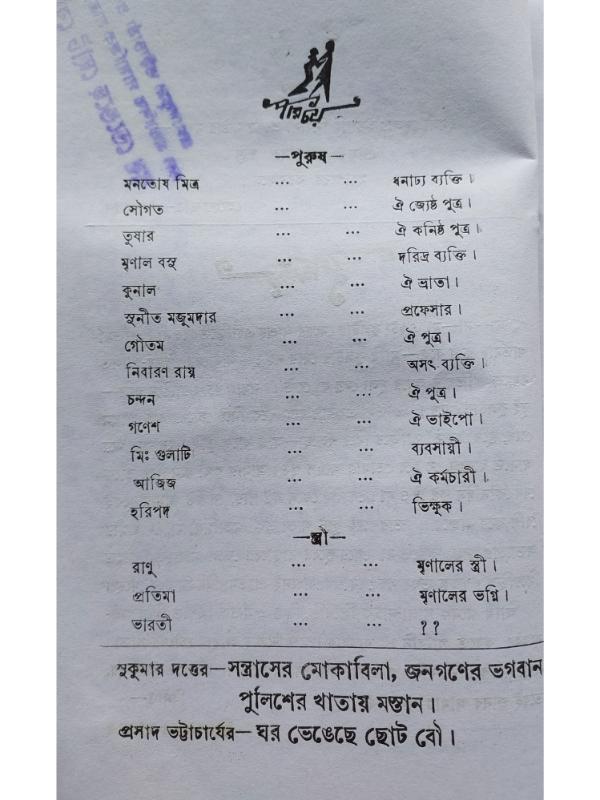 পরিচয়
—পুরুষ—
মনতোষ মিত্র ... ... ধনাঢ্য ব্যক্তি।
সৌগত ... ... ঐ জ্যেষ্ঠ পুত্র।
তুষার ... ... ঐ কনিষ্ঠ পুত্র।
মৃণাল বসু ... ... দরিদ্র ব্যক্তি।
কুনাল ... ... ঐ ভ্রাতা।
সুনীত মজুমদার ... ... প্রফেসার।
গৌতম ... ... ঐ পুত্র।
নিবারণ রায় ... ... অসৎ ব্যক্তি।
চন্দন ... ... ঐ পুত্র।
গণেশ ... ... ঐ ভাইপো।
মিঃ গুলাটি ... ... ব্যবসায়ী।
আজিজ ... ... ঐ কর্মচারী।
হরিপদ ... ... ভিক্ষুক।
—স্ত্রী—
রাণু ... ... মৃণালের স্ত্রী।
প্রতিমা ... ... মৃণালের ভগ্নি।
ভারতী ... ... ??
সুকুমার দত্তের—সন্ত্রাসের মোকাবিলা, জনগণের ভগবান
পুলিশের খাতায় মস্তান।
প্রসাদ ভট্টাচার্যের—ঘর ভেঙেছে ছোট বৌ।